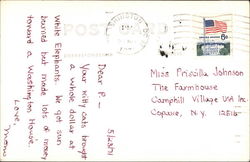 POST CARD
5/23/71
Dear P —
Your kitty cats brought
a whole dollar at
White Elephants. We got sun
burned but made lots of money
toward a Washington House.
Love,
Mom
6c
Miss Priscilla Johnson
The Farmhouse
Camphill Village USA Inc.
Copake, N.Y. 12516